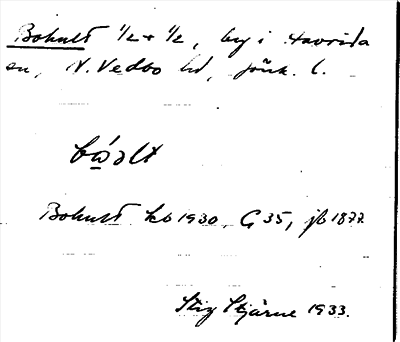 Bohult 1/2 + 1/2, by i Haurida
sn, N. Vedbo hd, Jönk. l.
Bohult kb 1930, G 35, jb 1877
Stig Stjärne 1933.